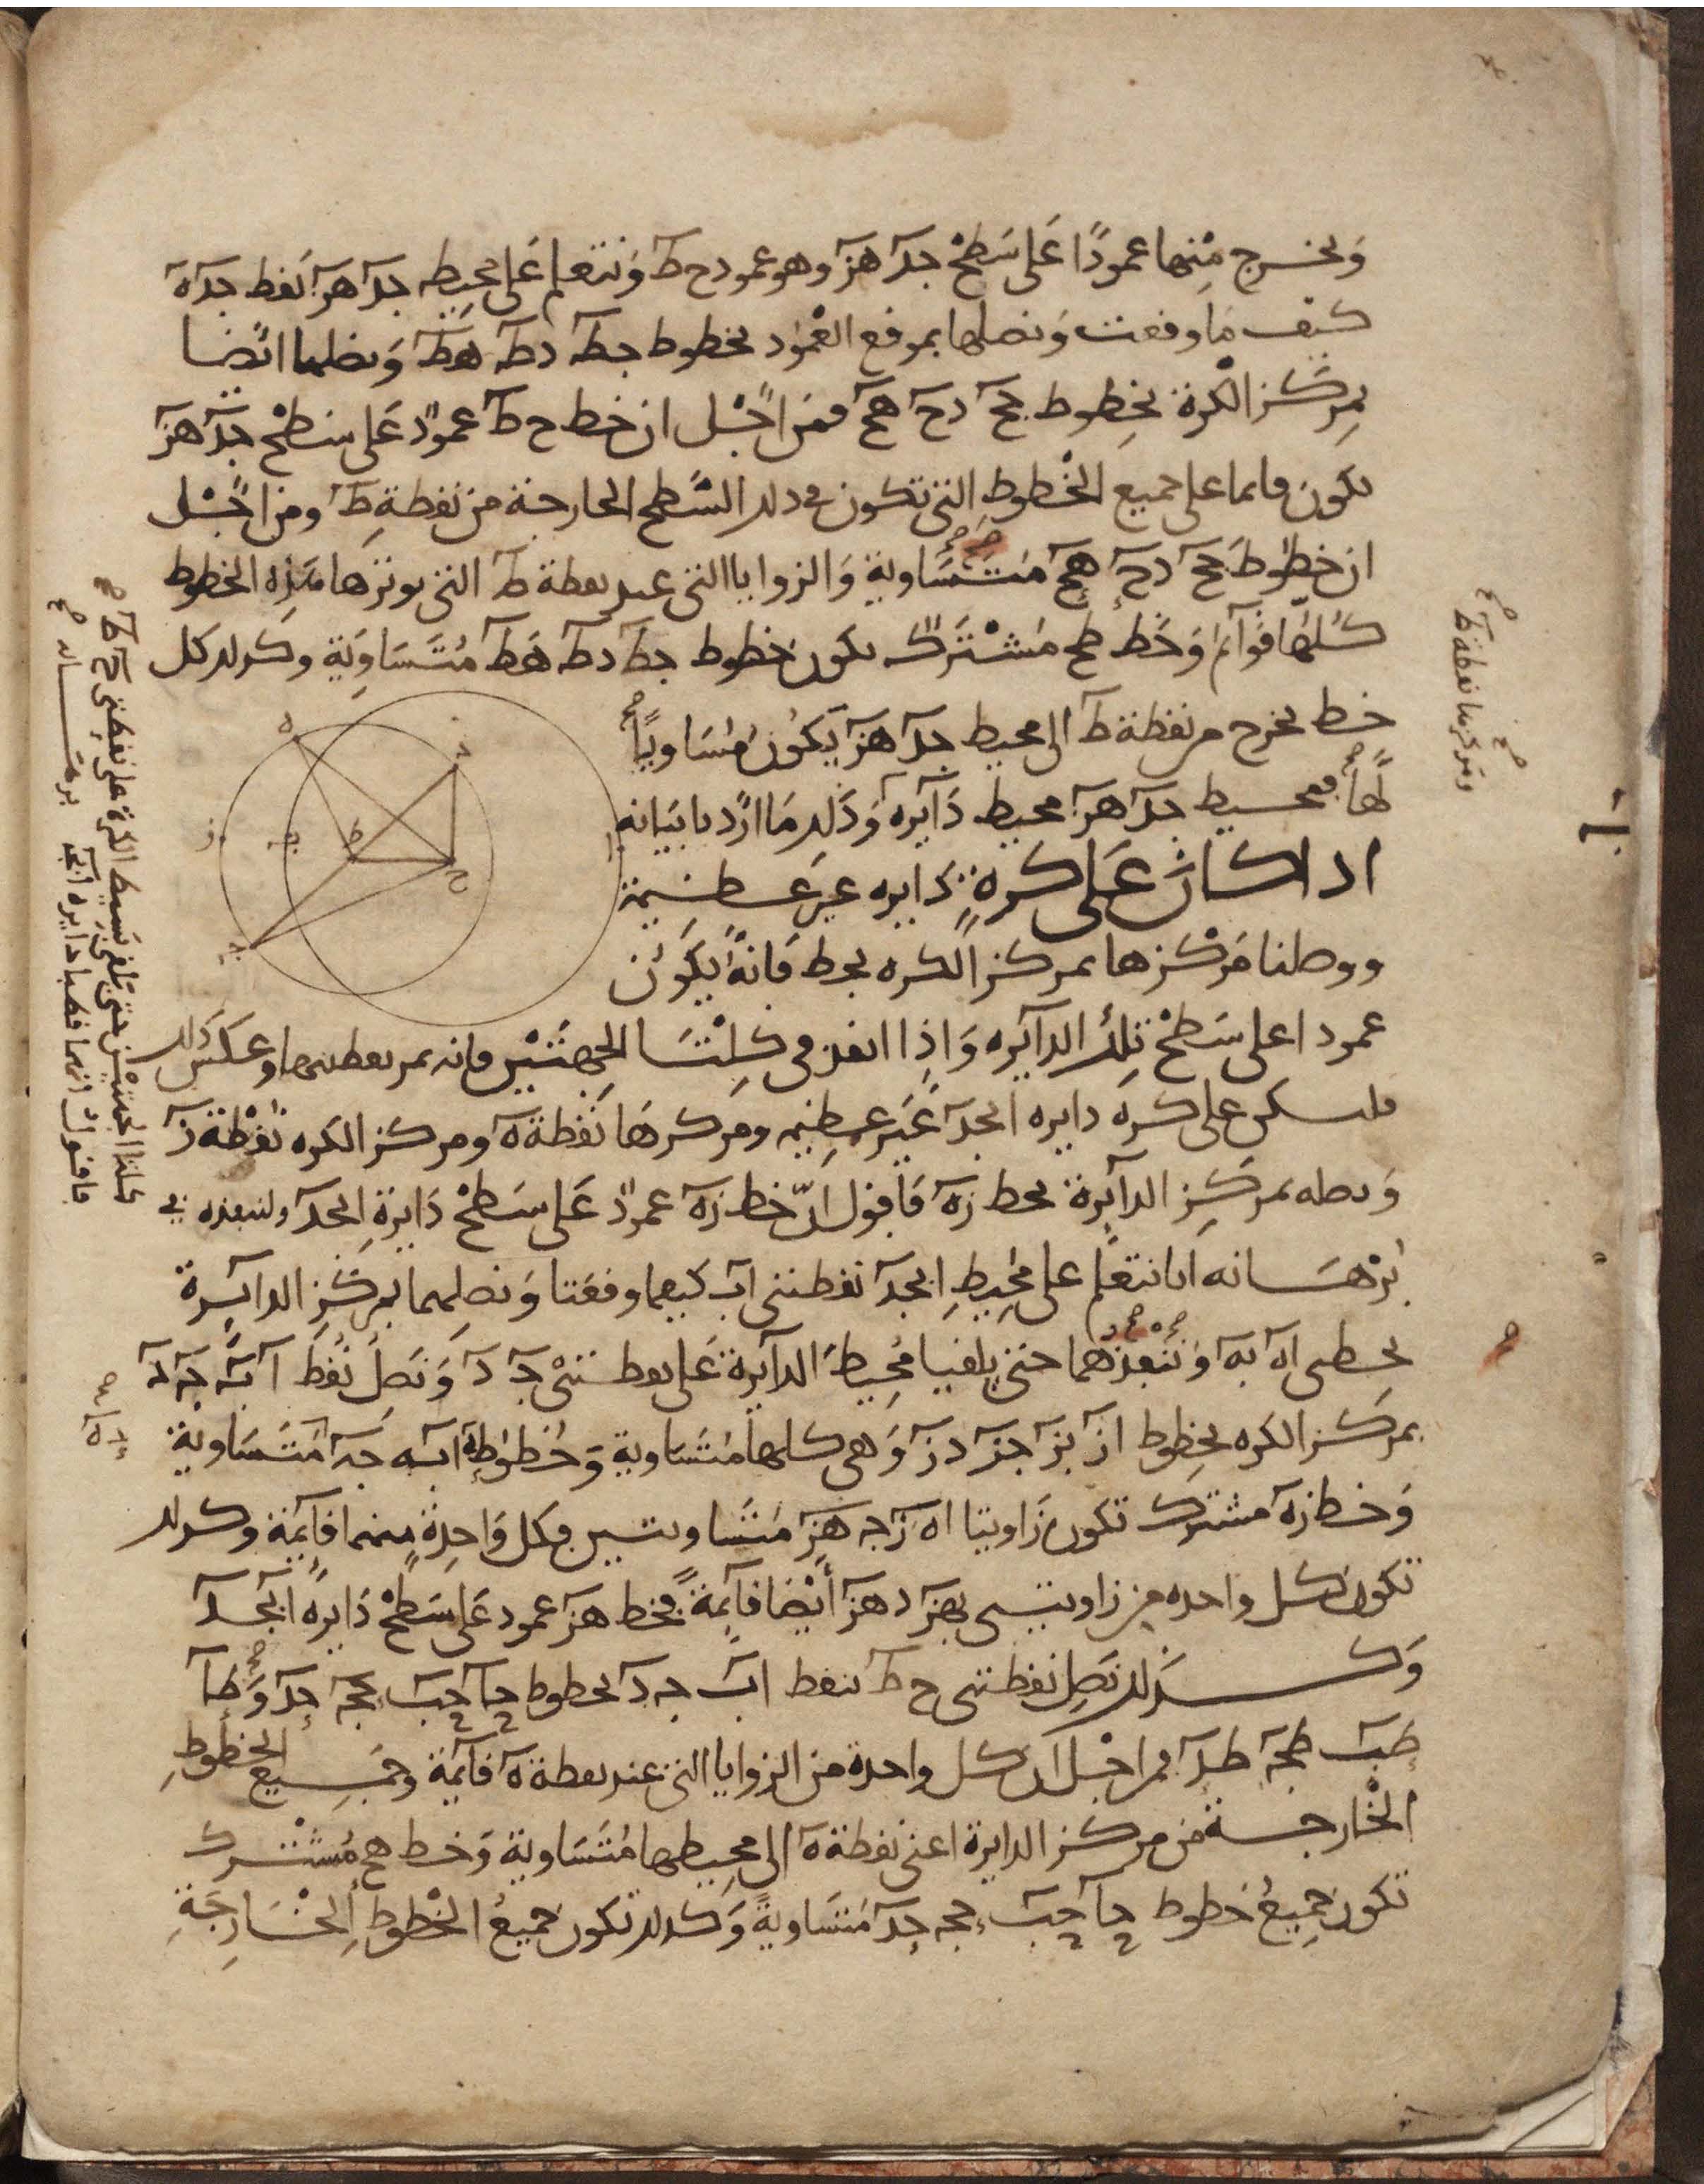 ونخرج منها عمودًا على سطح جد هز وهو عمود ح ط ونتعلم على محيط جد هز نقط جد ه
كيف ما وقعت ونصلها بموقع العمود بخطوط جط دط هط ونصلها ايضا
بمركز الكرة بخطوط جح دح هح فمن اجل ان خط ح ط عمود على سطح جد هز
يكون قائما على جميع الخطوط التي تكون في ذلك السطح الخارجة من نقطة ط ومن اجل
ان خطوط جح دح هح متساوية والزوايا التي عند نقطة ط التي يوترها هذه الخطوط
كلها قوائم وخط طح مشترك يكون خطوط جط دط هط متساوية وكذلك كل
خط يخرج من نقطة ط الى محيط جد هز يكون مساويًا
لها فمحيط جد هز محيط دايرة وذلك ما اردنا بيانه
اذا كان على كرة دايره غير عظيمة
ووصلنا مركزها بمركز الكره بخط فانه يكون
عمودا على سطح تلك الدايره واذا انفذ في كلتا الجهتين فانه يمر بقطبيها وعكس ذلك
فليكن على كره دايره ابجد غير عظيمه ومركزها نقطة ه ومركز الكره نقطة ز
ونصله بمركز الدايرة بخط زه فاقول ان خط زه عمود على سطح دايرة ابجد ولننفذه في
برهانه انا نتعلم على محيط ابجد نقطتي اب كيفما وقعتا ونصلهما بمركز الدايرة
بخطي اه به وننفذهما حتى يلقيا محيط الدايرة على نقطتي ج د ونصل نقط ا ب ج د
بمركز الكره بخطوط از بز جز دز وهي كلها متساوية وخطوط اه به جه متساوية
وخط زه مشترك تكون زاويتا اه ز جه هز متساويتين فكل واحدة منهما قايمة وكذلك
تكون كل واحده من زاويتي بهز دهز أيضا قايمة فخط هز عمود على سطح دايرة ابجد
وكذلك نصل نقطتي ح ط بنقط اب ج د بخطوط حا حب حج حد وطا
طب طج طد فمن اجل ان كل واحدة من الزوايا التي عند نقطة ه قايمة وجميع الخطوط
الخارجة من مركز الدايرة اعني نقطة ه الى محيطها متساوية وخط هح مشترك
تكون جميع خطوط حا حب حج حد متساوية وكذلك تكون جميع الخطوط الخارجة
ومركزها نقطة ط
كلتا الجهتين حتى يلقى بسيط الكرة على نقطتي ح ط
فاقول انهما قطبا دايره ابجد برهانه